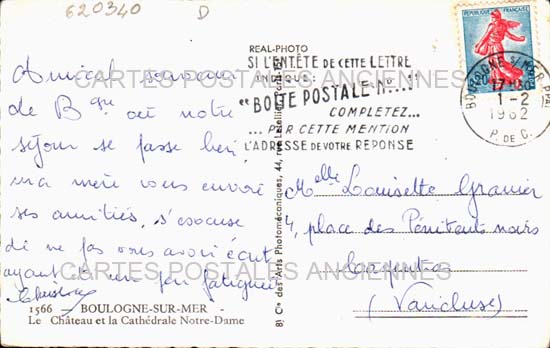 620340
D
REAL-PHOTO
SI L'ENTÊTE DE CETTE LETTRE
INDIQUE:
"BOITE POSTALE N°..."
COMPLETEZ...
...PAR CETTE MENTION
L'ADRESSE DE VOTRE RÉPONSE
REPUBLIQUE FRANÇAISE
BOULOGNE S/MER PPAL
17-30
1-2
1962
P. DE C.
CARTES POSTALES ANCIENNES
Amical souvenir
de Bgne où notre
séjour se passe bien,
ma mère vous envoie
ses amitiés, s'excuse
de ne pas vous avoir écrit
ayant été un peu fatiguée
Melle Louisette Granier
4, place des Pénitents noirs
Carpentras
(Vaucluse)
CARTES POSTALES ANCIENNES
Cie des Arts Photomécaniques, 44, rue Letellier
1566 - BOULOGNE-SUR-MER -
Le Château et la Cathédrale Notre-Dame